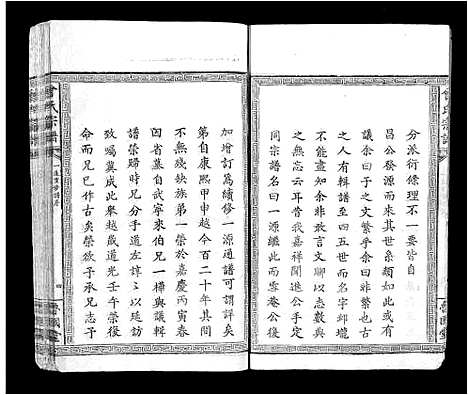 分派衍條理不一要皆自
昌公發源而來其世系頌如此或
議余曰子之文繁乎余曰非繁也古
之人有輯譜至四五世而名字邱壠
不能盡知余非敢言文聊以志數典
之無忘云耳昔我嘉祥聞進公手定
同宗譜名曰一源繼此而雲巷公復
加增訂為續修一源通譜可謂詳矣
第自康熙甲申越今百二十年其間
不無殘缺族弟一榮於嘉慶丙寅春
因省墓自武寧來伯兄一樺與議輯
譜榮歸時兄分手於道左諄諄以延訪
致囑冀成此舉越歲道光壬午榮復
命而兄已作古矣榮欲子承兄志予
曾氏宗譜
魯國堂